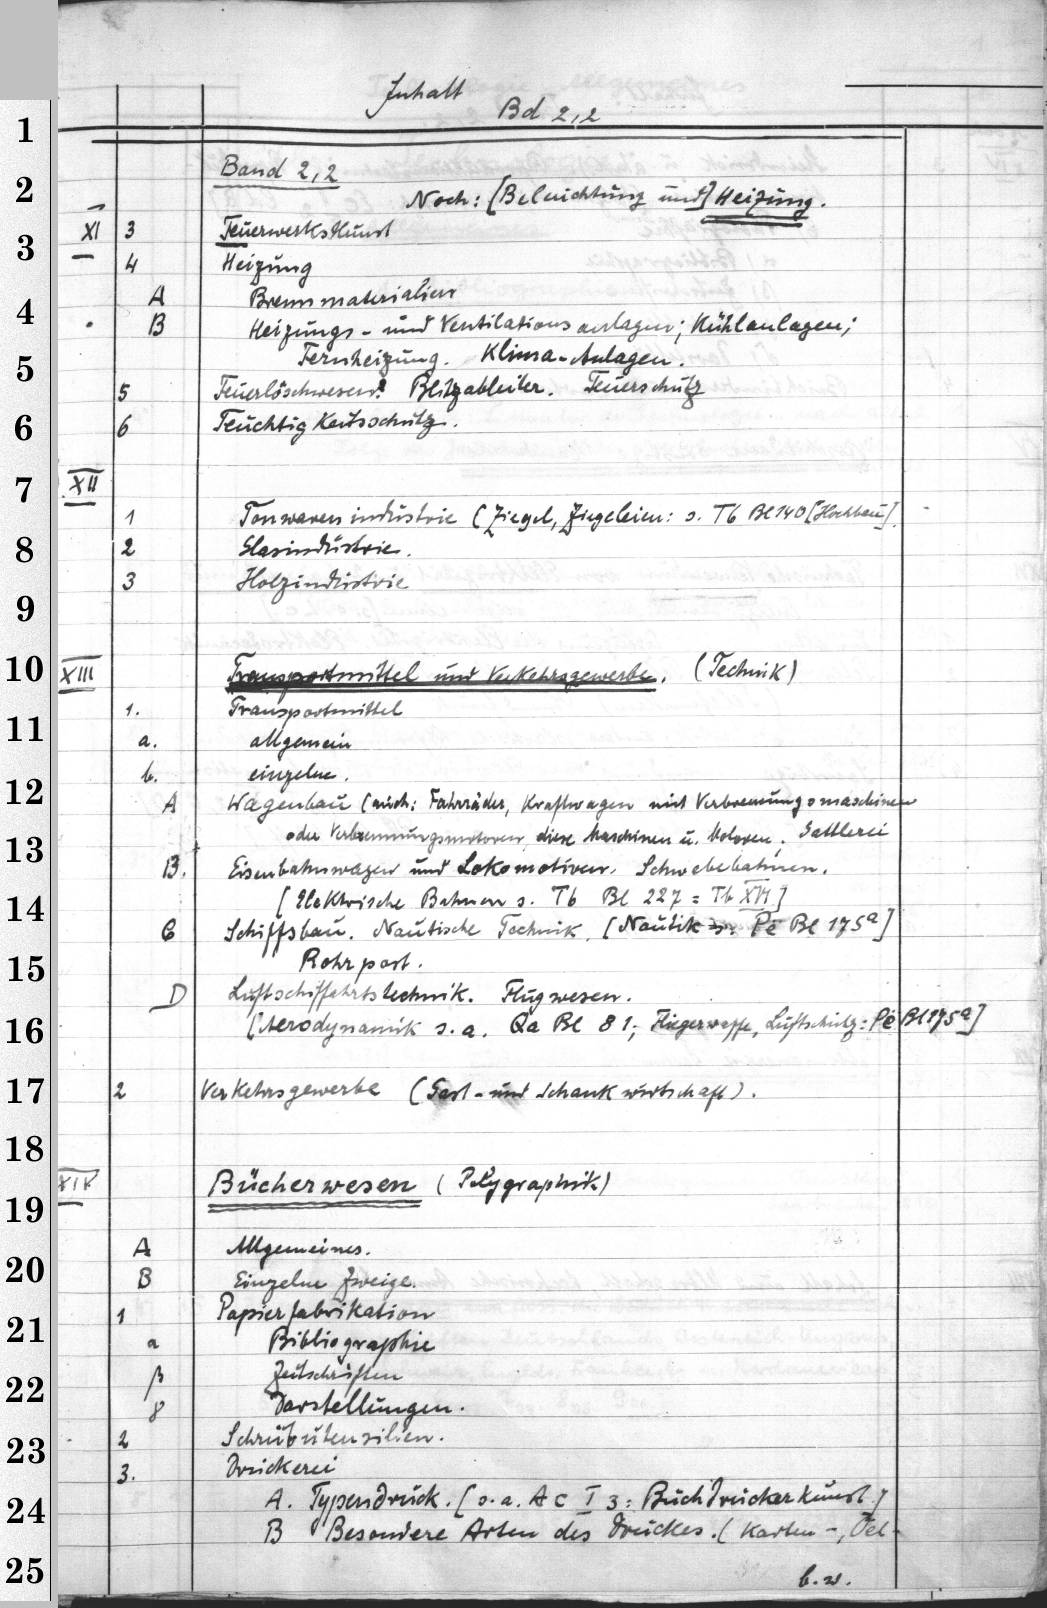 Inhalt
Bd 2,2
1
Band 2,2
2
Noch: [Beleuchtung und] Heizung.
XI 3 Feuerwerkskunst
3
4 Heizung
A Brennmaterialien
4
B Heizungs- und Ventilationsanlagen; Kühlanlagen;
Fernheizung. Klima-Anlagen.
5
5 Feuerlöschwesen. Blitzableiter. Feuerschutz
6 Feuchtigkeitsschutz.
6
XII
7
1 Tonwarenindustrie (Ziegel, Ziegeleien: s. Tb Bl 140 [Hochbau].
8
2 Glasindustrie.
3 Holzindustrie
9
10
XIII Transportmittel und Verkehrsgewerbe. (Technik)
1. Transportmittel
11
a. allgemein
b. einzelne.
12
A Wagenbau (auch: Fahrräder, Kraftwagen mit Verbrennungsmaschinen
oder Verbrennungsmotoren, diese Maschinen u. Motoren. Sattlerei
13
B. Eisenbahnwagen und Lokomotiven. Schwebebahnen.
[Elektrische Bahnen s. Tb Bl 227 = Tb XVI]
14
C Schiffsbau. Nautische Technik. [Nautik s. Pe Bl 175a]
Rohrpost.
15
D Luftschiffahrtstechnik. Flugwesen.
[Aerodynamik s.a. Qa Bl 81; Fliegerwaffe, Luftschutz: Pe Bl 175a]
16
2 Verkehrsgewerbe (Gast- und Schankwirtschaft).
17
18
XIV Bücherwesen (Polygraphik)
19
A Allgemeines.
20
B Einzelne Zweige.
1 Papierfabrikation
21
α Bibliographie
β Zeitschriften
22
γ Darstellungen.
2 Schreibutensilien.
23
3. Druckerei
A. Typendruck. [s.a. Ac I 3: Buchdruckerkunst]
24
B Besondere Arten des Druckes. (Karten-, Oel-
25
b.w.